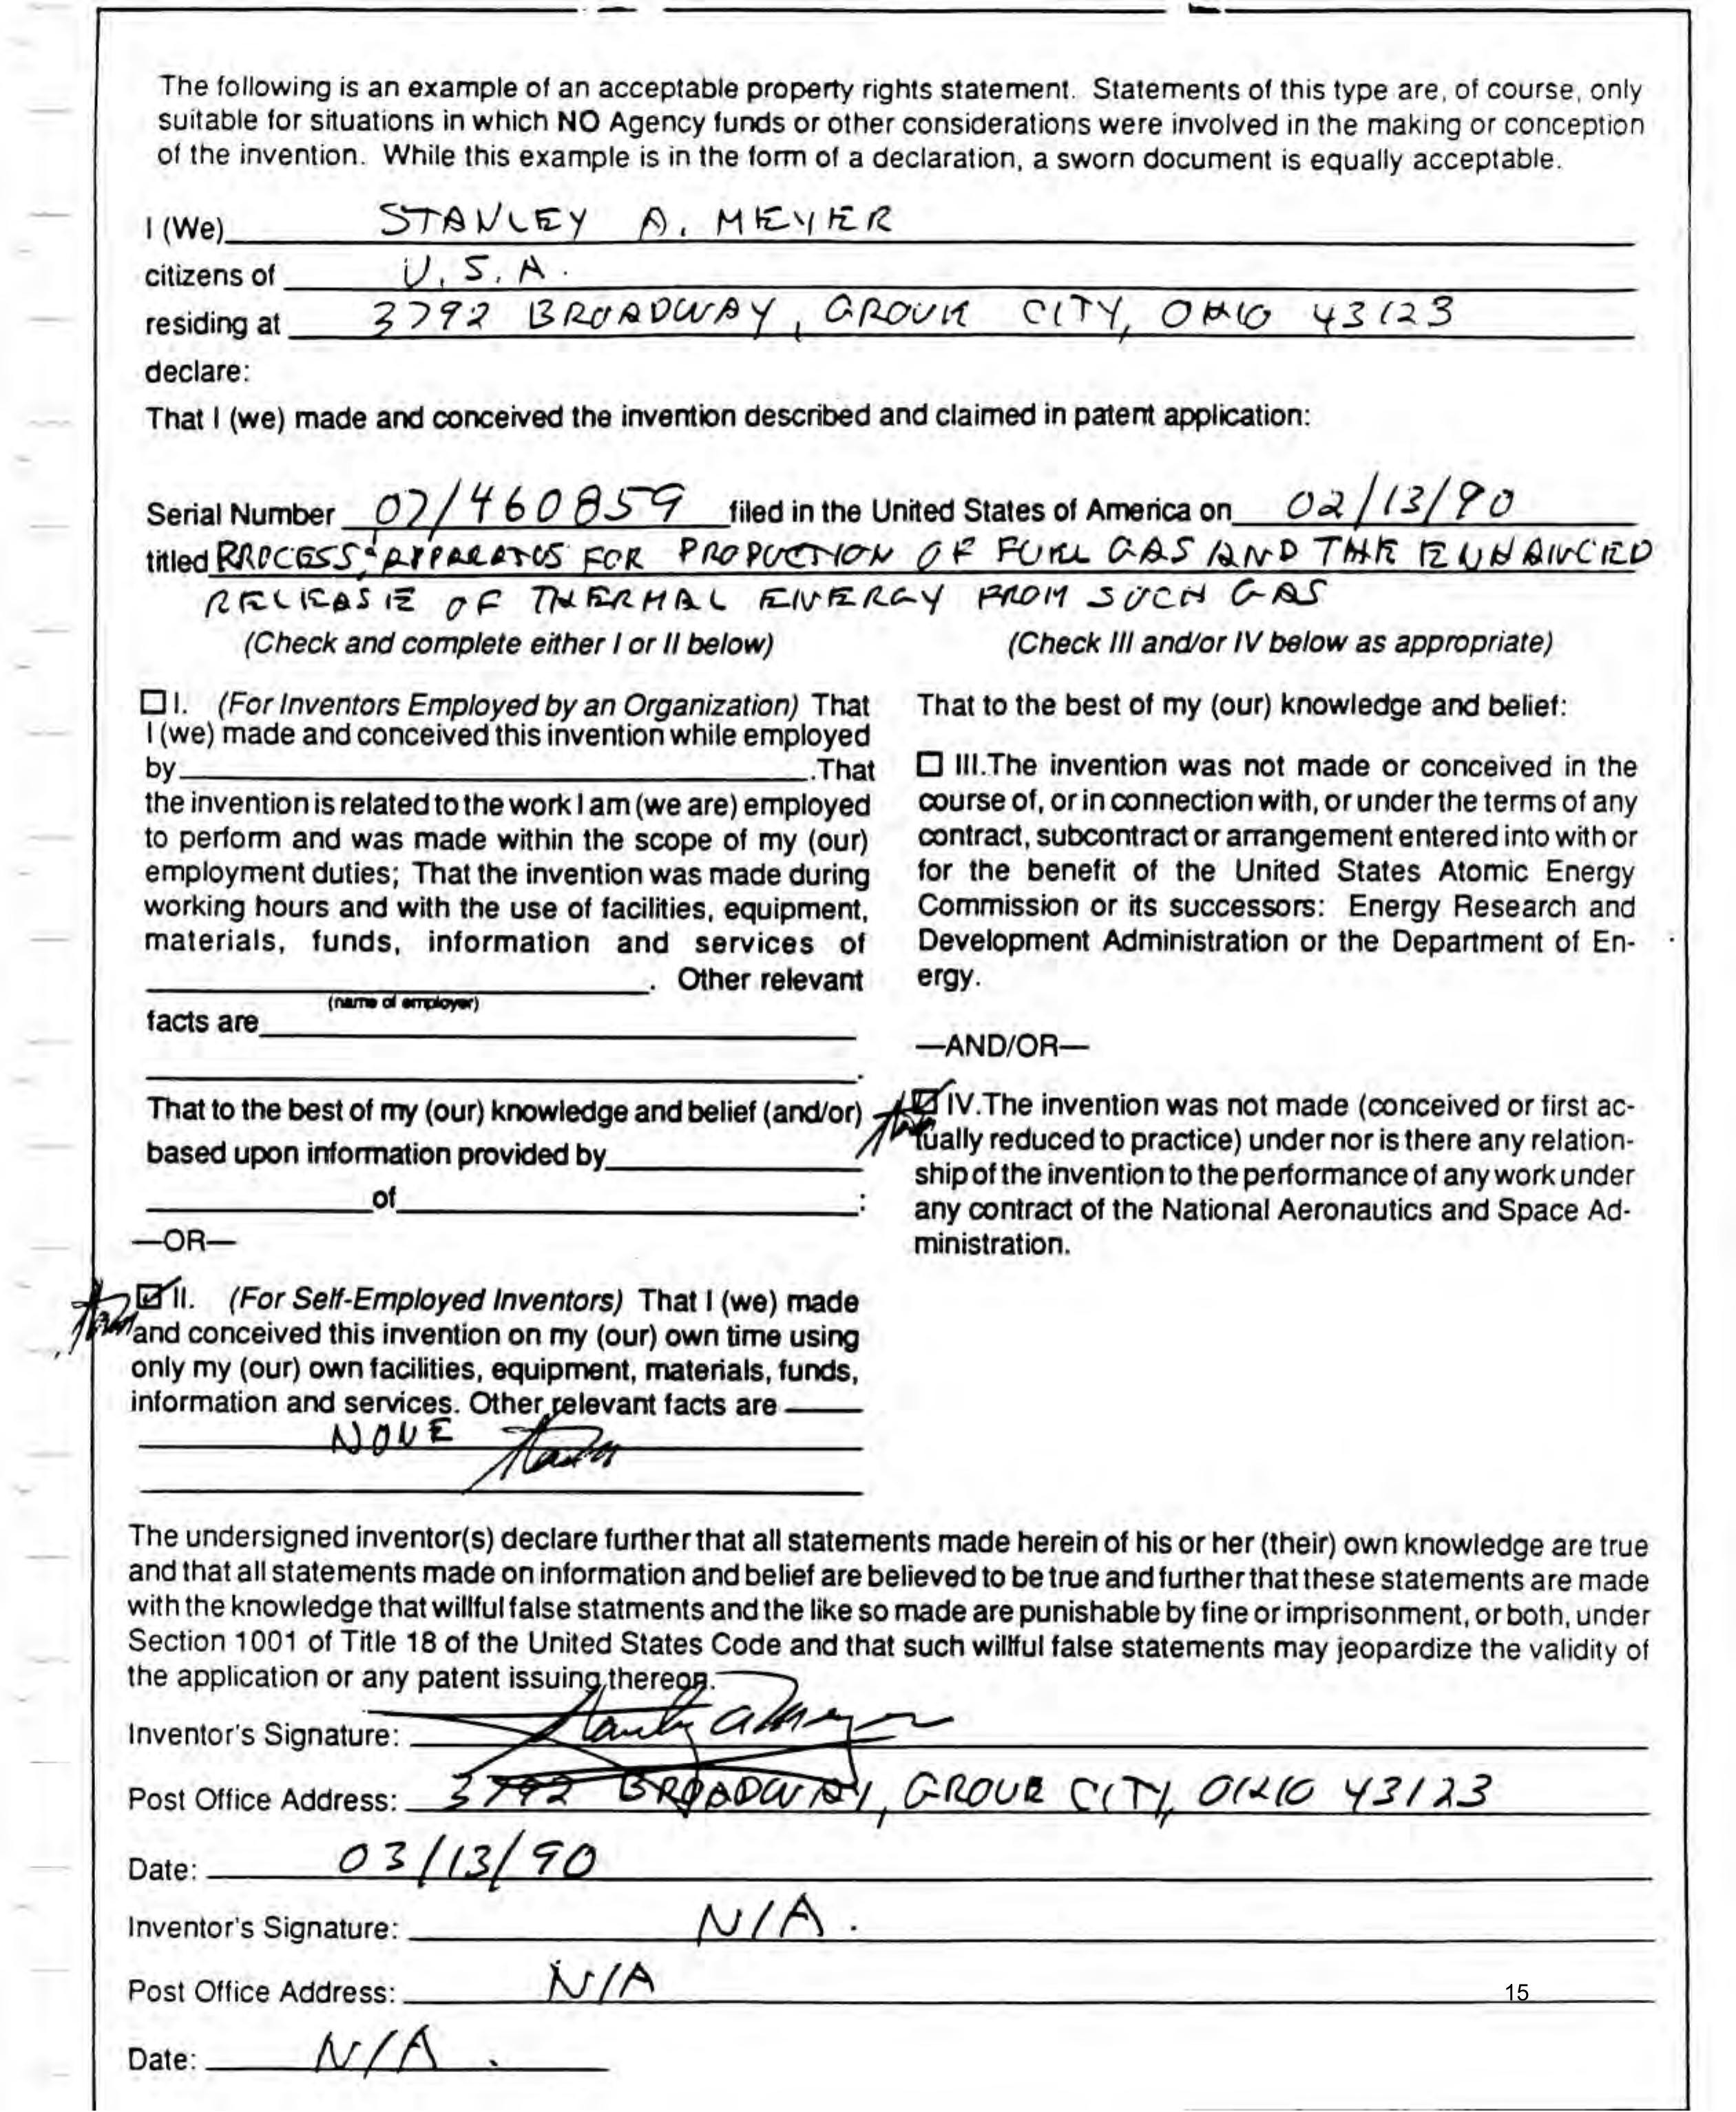 The following is an example of an acceptable property rights statement. Statements of this type are, of course, only
suitable for situations in which NO Agency funds or other considerations were involved in the making or conception
of the invention. While this example is in the form of a declaration, a sworn document is equally acceptable.
I (We) STANLEY A. MEYER
citizens of U.S.A.
residing at 3792 BROADWAY, GROVE CITY, OHIO 43123
declare:
That I (we) made and conceived the invention described and claimed in patent application:
Serial Number 07/460859 filed in the United States of America on 02/13/90
titled PROCESS & APPARATUS FOR PRODUCTION OF FUEL GAS AND THE ENHANCED
RELEASE OF THERMAL ENERGY FROM SUCH GAS
(Check and complete either I or II below)
(Check III and/or IV below as appropriate)
I. (For Inventors Employed by an Organization) That
I (we) made and conceived this invention while employed
by .That
the invention is related to the work I am (we are) employed
to perform and was made within the scope of my (our)
employment duties; That the invention was made during
working hours and with the use of facilities, equipment,
materials, funds, information and services of
. Other relevant
(name of employer)
facts are
.
That to the best of my (our) knowledge and belief (and/or)
based upon information provided by
of :
—OR—
II. (For Self-Employed Inventors) That I (we) made
and conceived this invention on my (our) own time using
only my (our) own facilities, equipment, materials, funds,
information and services. Other relevant facts are
NONE
That to the best of my (our) knowledge and belief:
III.The invention was not made or conceived in the
course of, or in connection with, or under the terms of any
contract, subcontract or arrangement entered into with or
for the benefit of the United States Atomic Energy
Commission or its successors: Energy Research and
Development Administration or the Department of En-
ergy.
—AND/OR—
IV.The invention was not made (conceived or first ac-
tually reduced to practice) under nor is there any relation-
ship of the invention to the performance of any work under
any contract of the National Aeronautics and Space Ad-
ministration.
The undersigned inventor(s) declare further that all statements made herein of his or her (their) own knowledge are true
and that all statements made on information and belief are believed to be true and further that these statements are made
with the knowledge that willful false statments and the like so made are punishable by fine or imprisonment, or both, under
Section 1001 of Title 18 of the United States Code and that such willful false statements may jeopardize the validity of
the application or any patent issuing thereon.
Inventor's Signature: Stanley A Meyer
Post Office Address: 3792 BROADWAY, GROVE CITY, OHIO 43123
Date: 03/13/90
Inventor's Signature: N/A.
Post Office Address: N/A
15
Date: N/A.